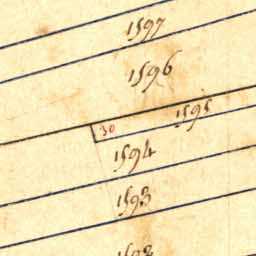 1597
1596
1595
30
1594
1593